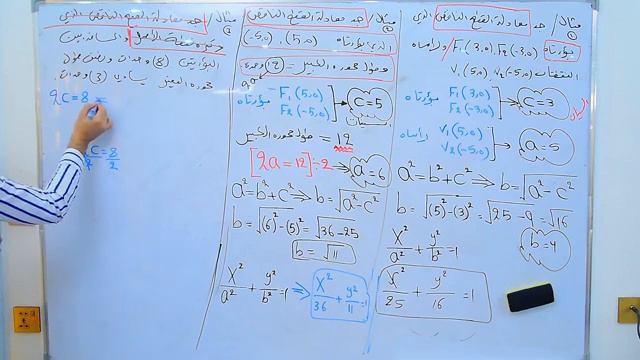 مثال/ جد معادلة القطع الناقص الذي
بؤرتاه F₁(3,0) F₂(-3,0) ورأساه
النقطتان V₁(5,0) V₂(-5,0)
بؤرتاه F₁(3,0) F₂(-3,0) → C=3
رأساه V₁(5,0) V₂(-5,0) → a=5
a²=b²+c² ⇒ b=√a²-c²
b=√(5)²-(3)² = √25-9 = √16
b=4
X²/a² + y²/b² =1
X²/25 + y²/16 =1
مثال/ جد معادلة القطع الناقص
الذي بؤرتاه (5,0) , (-5,0)
وطول محوره الكبير = (12) وحدة
بؤرتاه F₁(5,0) F₂(-5,0) → C=5
طول محوره الكبير = 12
[2a=12]÷2 → a=6
a²=b²+c² ⇒ b=√a²-c²
b=√(6)²-(5)² = √36-25
b=√11
X²/a² + y²/b² =1 ⇒ X²/36 + y²/11 =1
مثال/ جد معادلة القطع الناقص الذي
مركزه نقطة الأصل والمسافة بين
البؤرتين (8) وحدات ونصف طول
محوره الصغير يساوي (3) وحدات.
2C=8 =
C/2=8/2